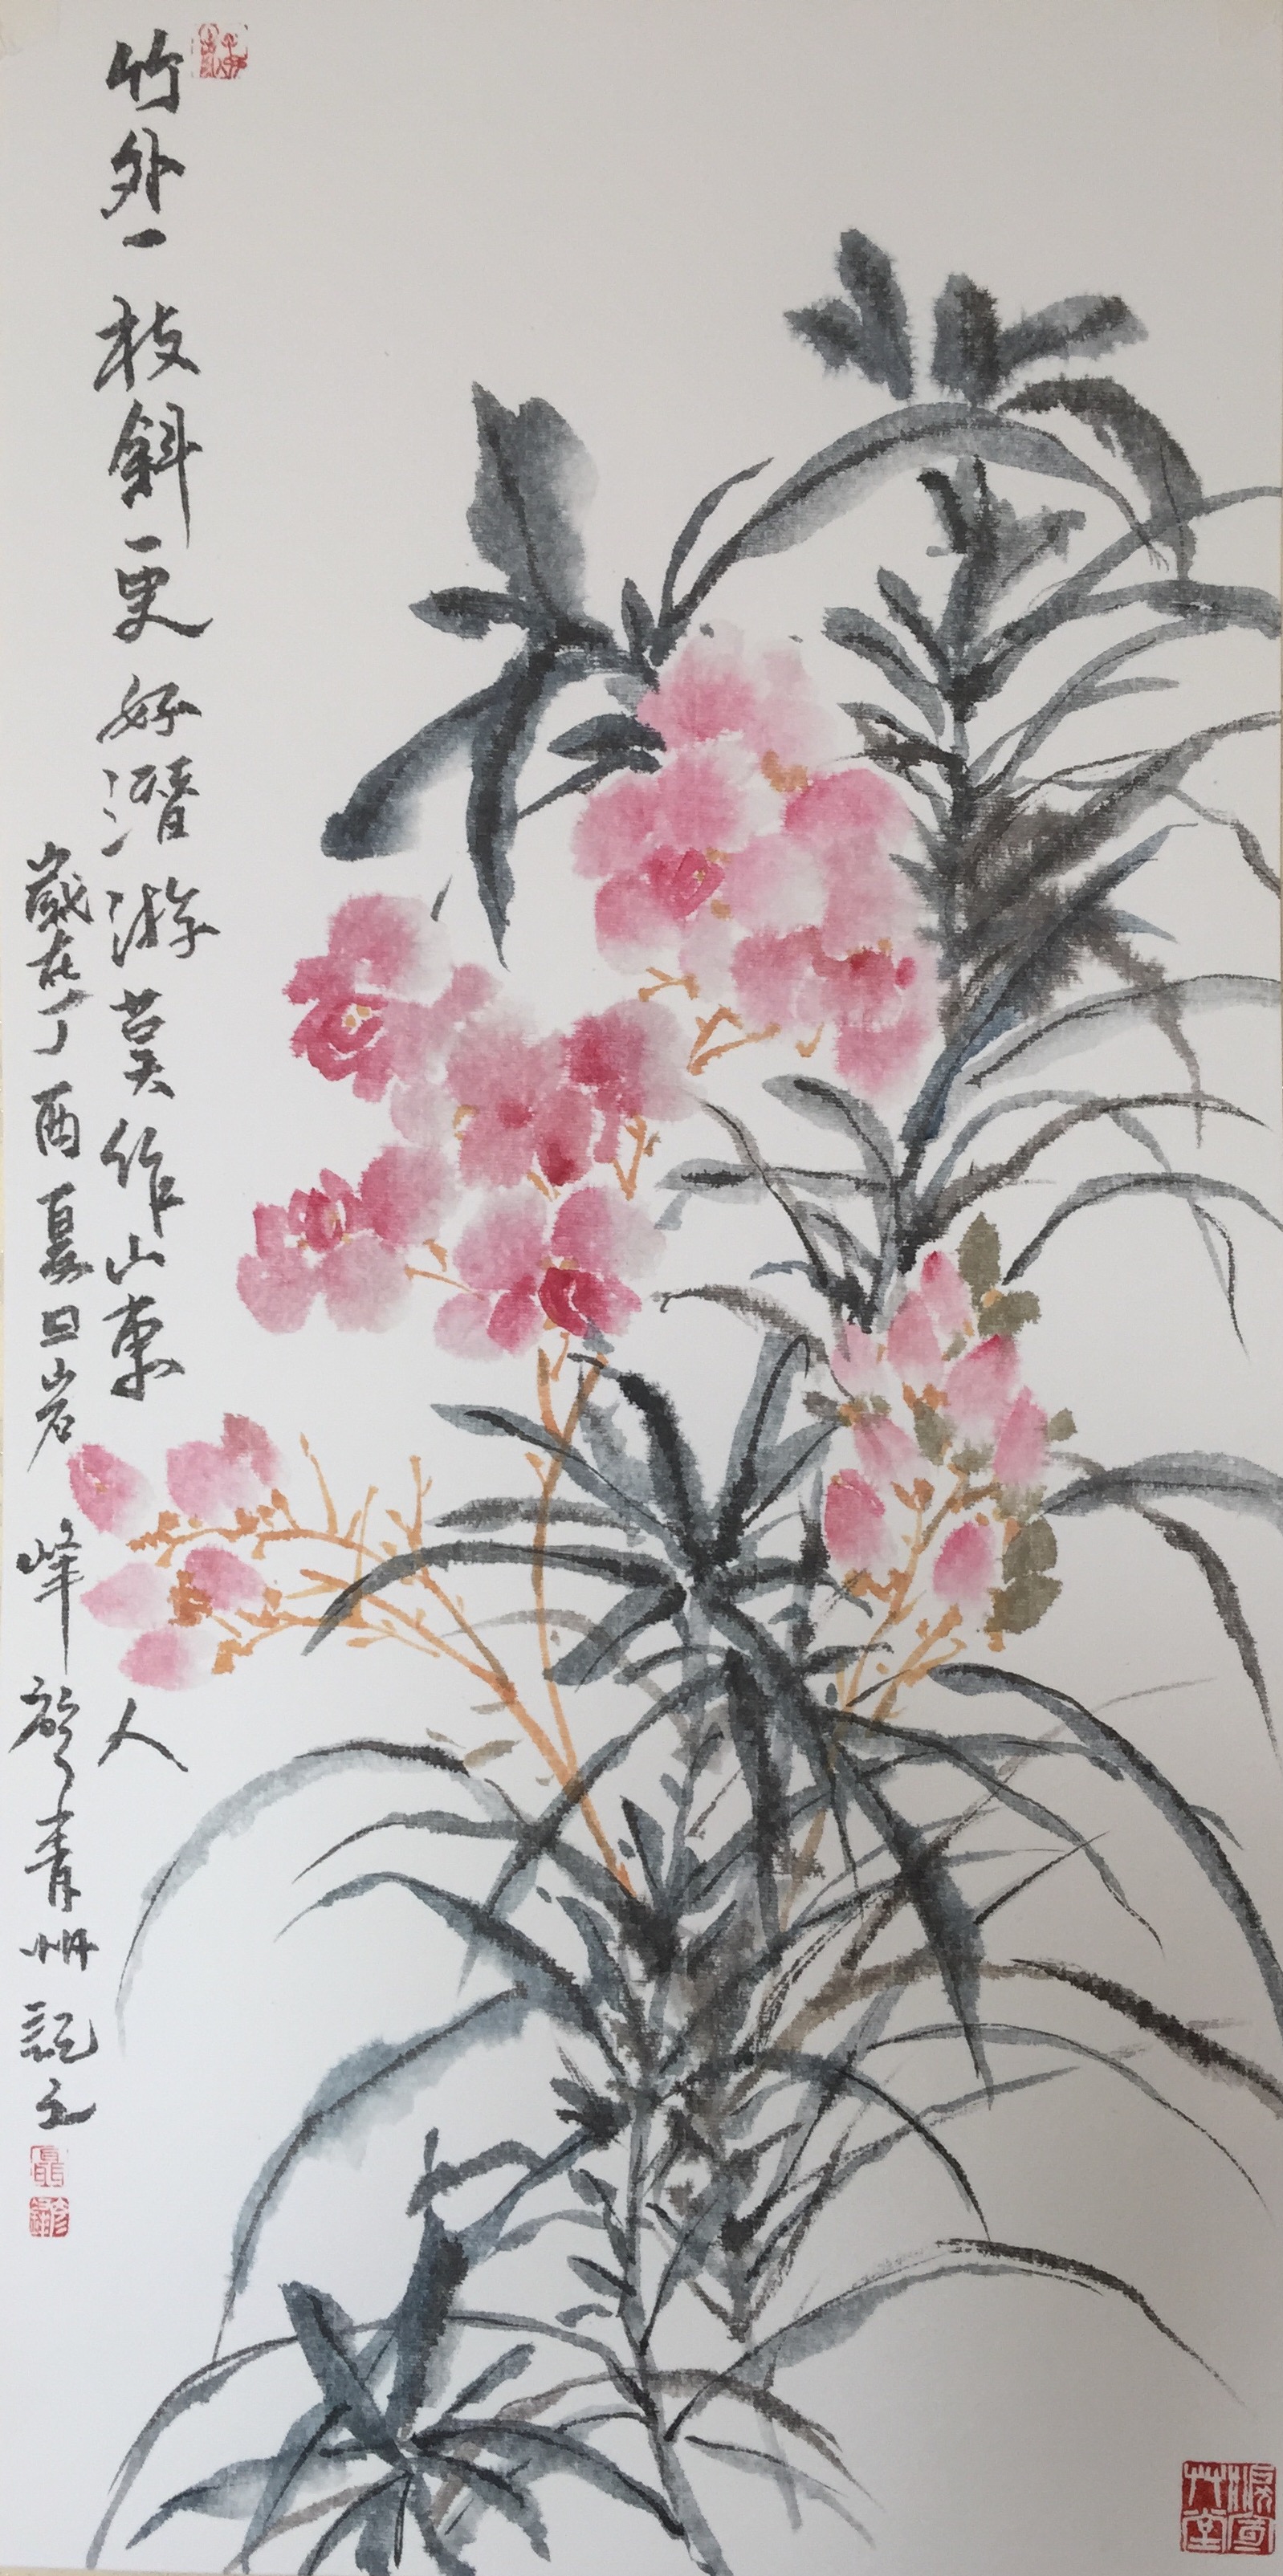 竹外一枝斜更好潛游莫作山東人
歲在丁酉夏日岩峰聶齡青州記之